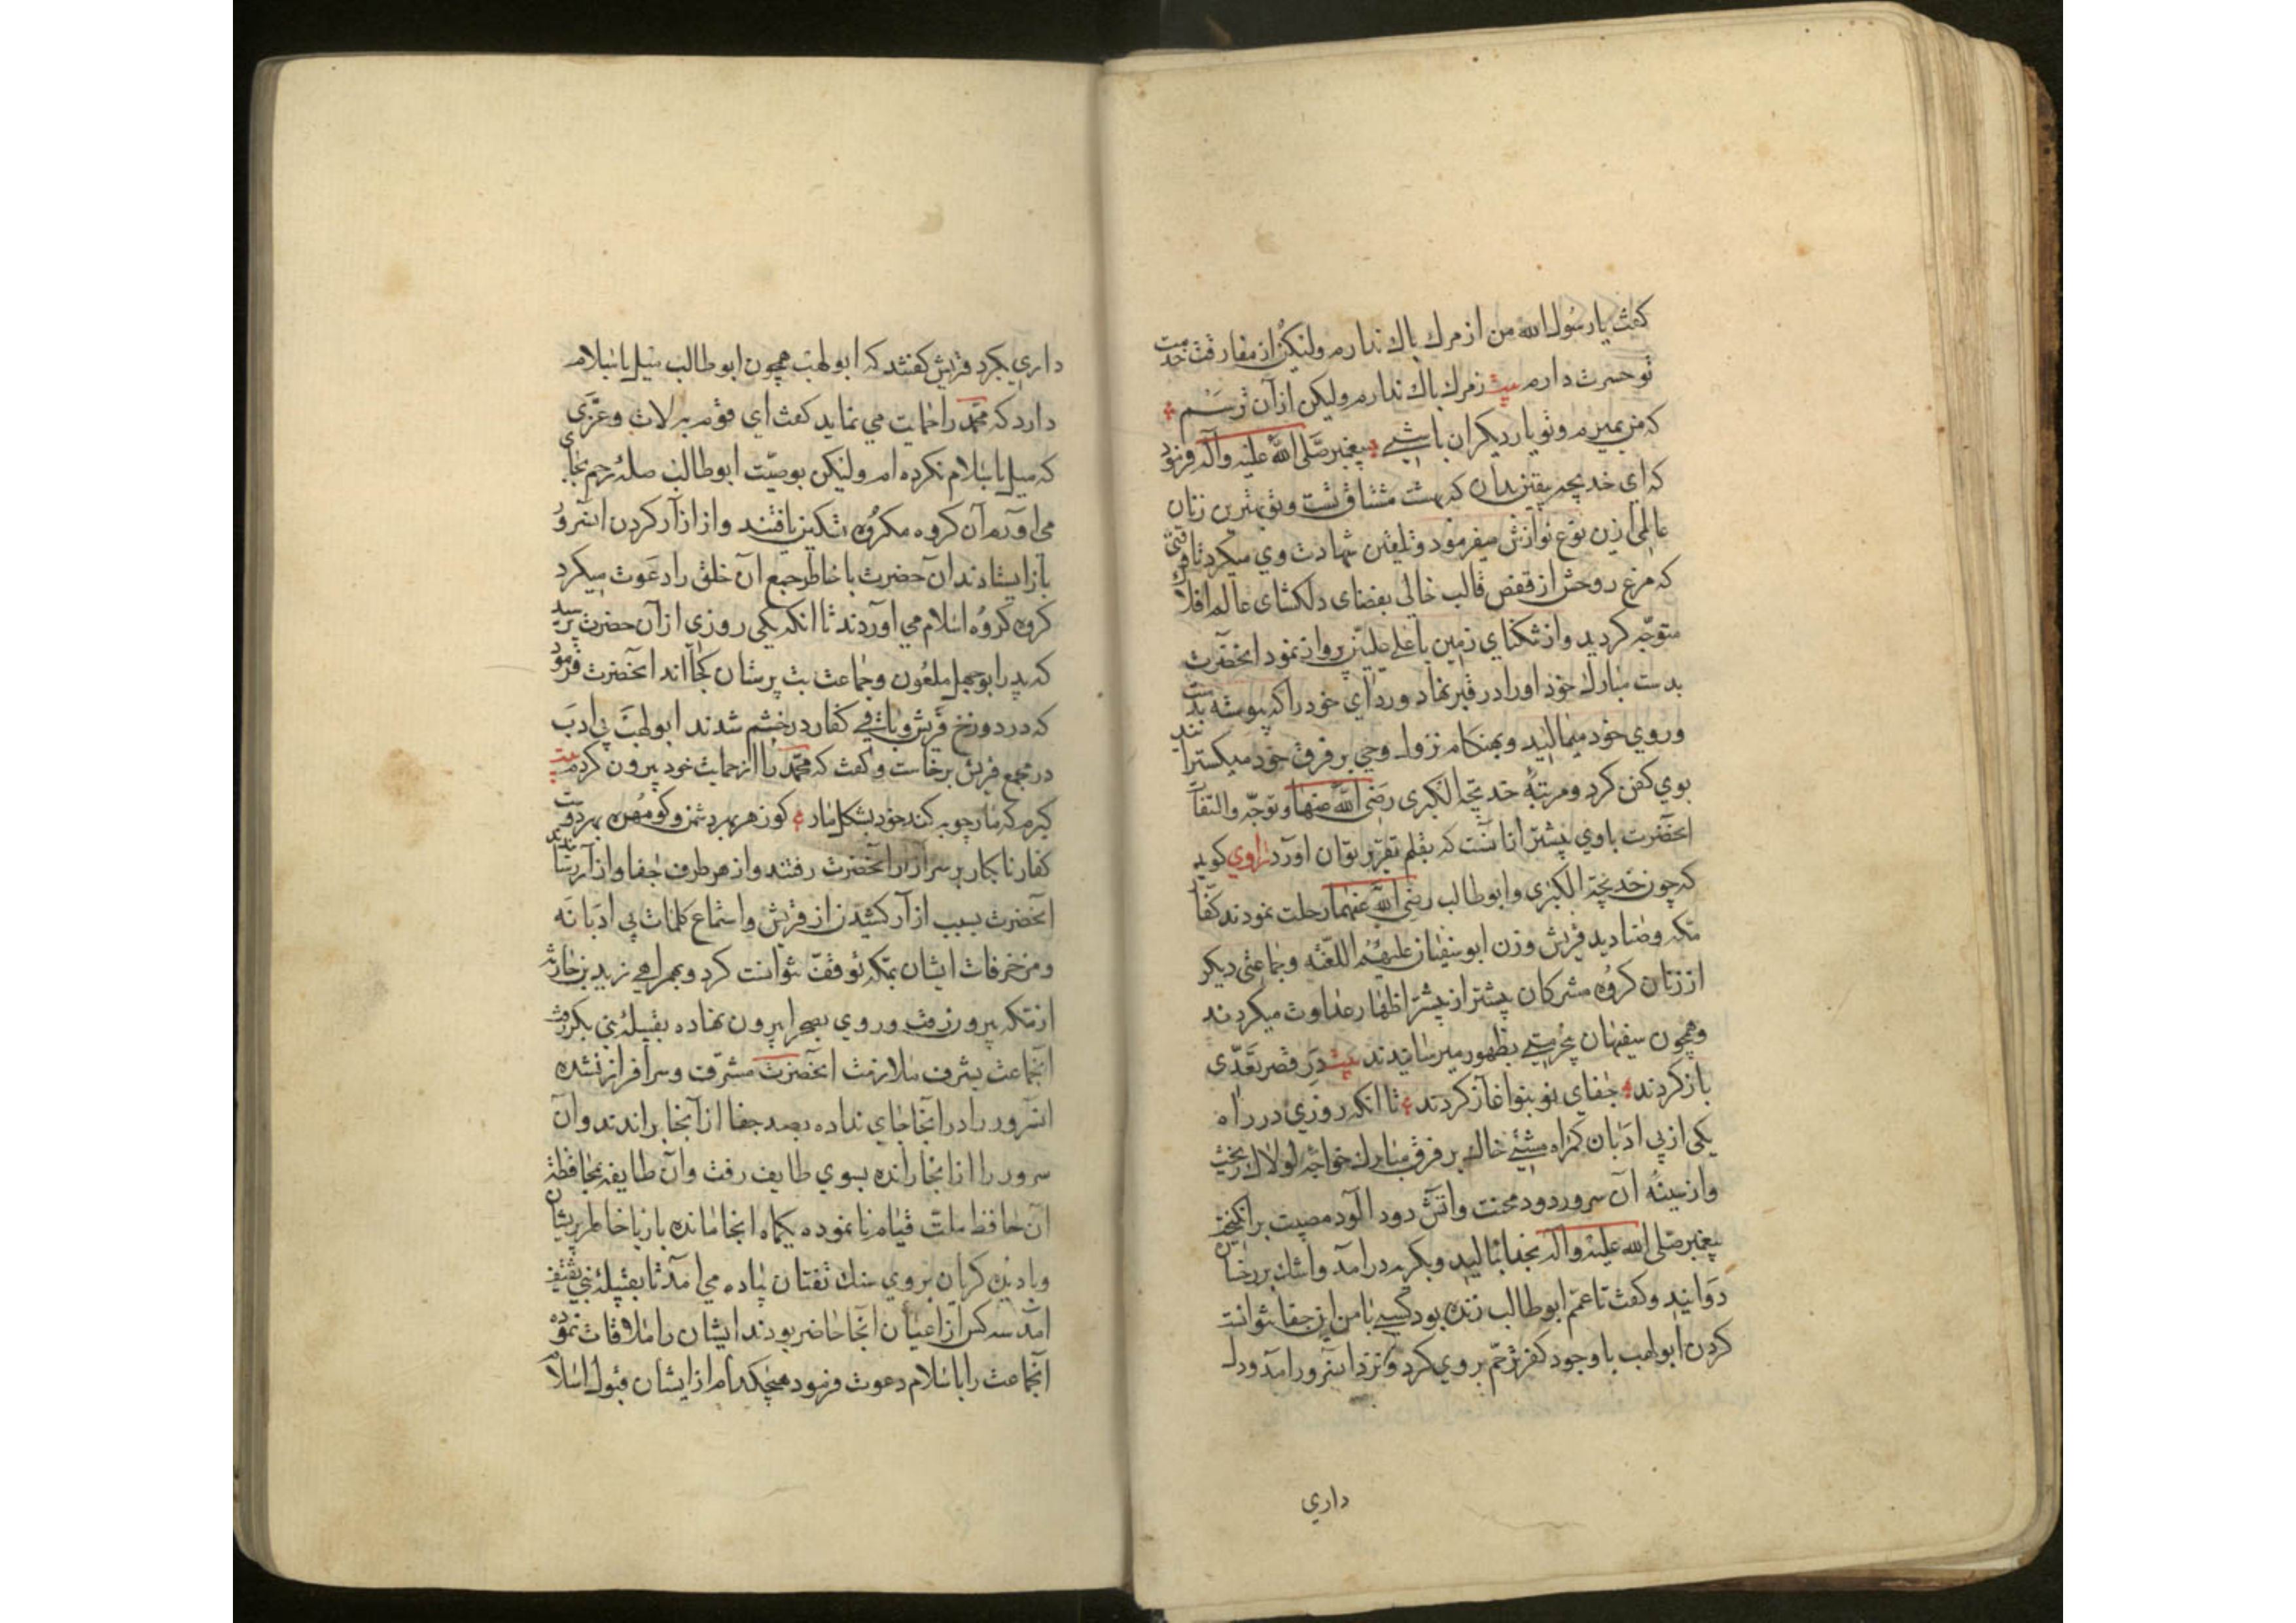 کفت یا رسول الله من از مرك باك ندارم ولیکن از مفارقت خدمت
تو حسرت دارم بیت ز مرك باك ندارم ولیکن از آن ترسم
که من بمیرم و تو یار دیکران باشی پیغمبر صلی الله علیه وآله فرمود
که ای خدیجه یقین بدان که بهشت مشتاق تست و تو بهترین زنان
عالمی ازین نوع نوازش میفرمود و تلقین شهادت وي میکرد تا وقتی
که مرغ روحش از قفص قالب خالی بفضای دلکشای عالم افلاك
متوجه کردید و از تنکنای زمین باعلی علیین پرواز نمود انحضرت
بدست مبارك خود اورا در قبر نهاد و ردای خود را که پیوسته بدست
وروي خود میمالید و بهنکام نزول وحی بر فرق خود میکسترانید
بوي کفن کرد و مرتبهٔ خدیجة الکبری رضی الله عنها و توجه والتفات
انحضرت باوي بیشتر از انست که بقلم تقریر توان اورد راوي کوید
که چون خدیجة الکبری وابو طالب رضی الله عنهما رحلت نمودند کفار
مکه وصنادید قریش وزن ابو سفیان علیهم اللعنه وجماعتی دیکر
از زنان کروه مشرکان بیشتر از پیشتر اظهار عداوت میکردند
وهمچون سفیهان بیحرمتی بظهور میرسانیدند بیت در قصر تعدی
باز کردند جفای نو بنو اغاز کردند تا انکه روزي در راه
یکی از بی ادبان کمراه مشتی خاك بر فرق مبارك خواجه لولاك ریخت
واز سینهٔ آن سرور دود محنت واتش دود الود مصیبت برانکیخت
پیغمبر صلی الله علیه واله بخدا بنالید وبکریه درامد واشك بر رخسار
دوانید وکفت تا عمم ابو طالب زنده بود کسی با من این جفا نتوانست
کردن ابو لهب با وجود کفر ترحم بروي کرد ونزد انسرور امد ودل
داري
داري بکرد قریش کفتند که ابو لهب همچون ابو طالب میل باسلام
دارد که محمد را حمایت می نماید کفت اي قوم به لات وعزی
که میل باسلام نکرده ام ولیکن بوصیت ابو طالب صلهٔ رحم بجای
می اورم آن کروه مکروه تسکین یافتند واز ازار کردن انسرور
باز ایستادند ان حضرت با خاطر جمع ان خلق را دعوت میکرد
کروه کروه اسلام می اوردند تا انکه یکی روزي از آن حضرت پرسید
که پدر ابو جهل ملعون وجماعت بت پرستان کجا اند انحضرت فرمود
که در دوزخ قریش وباقی کفار در خشم شدند ابو لهب بی ادب
در مجمع قریش برخاست وکفت که محمد را از حمایت خود بیرون کردم بیت
کیرم که مار چوبه کند خود بشکل مار کو زهر بهر دشمن وکو مهره بهر دوست
کفار نابکار بر سر ازار انحضرت رفتند واز هر طرف جفا وازار رسانیدند
انحضرت بسبب ازار کشیدن از قریش واستماع کلمات بی ادبانه
ومزخرفات ایشان بمکه توقف نتوانست کرد وبهمراهی زید بن حارثه
از مکه بیرون رفت وروي بصحرا بیرون نهاده بقبیلهٔ بنی بکر رفت
انجماعت بشرف ملازمت انحضرت مشرف وسرافراز نشده
انسرور را در انجا جاي نداده بصد جفا از انجا براندند وان
سرور را از انجا رانده بسوي طایف رفت وان طایفه بمحافظة
ان حافظ ملت قیام نا نموده یکماه انجا مانده باز با خاطر پریشان
وبا دیده کریان بروي سنك تفتان پیاده می آمد تا بقبیلهٔ بنی ثقیف
امد سه کس از اعیان انجا حاضر بودند ایشان را ملاقات نموده
انجماعت را باسلام دعوت فرمود هیچکدام از ایشان قبول اسلام